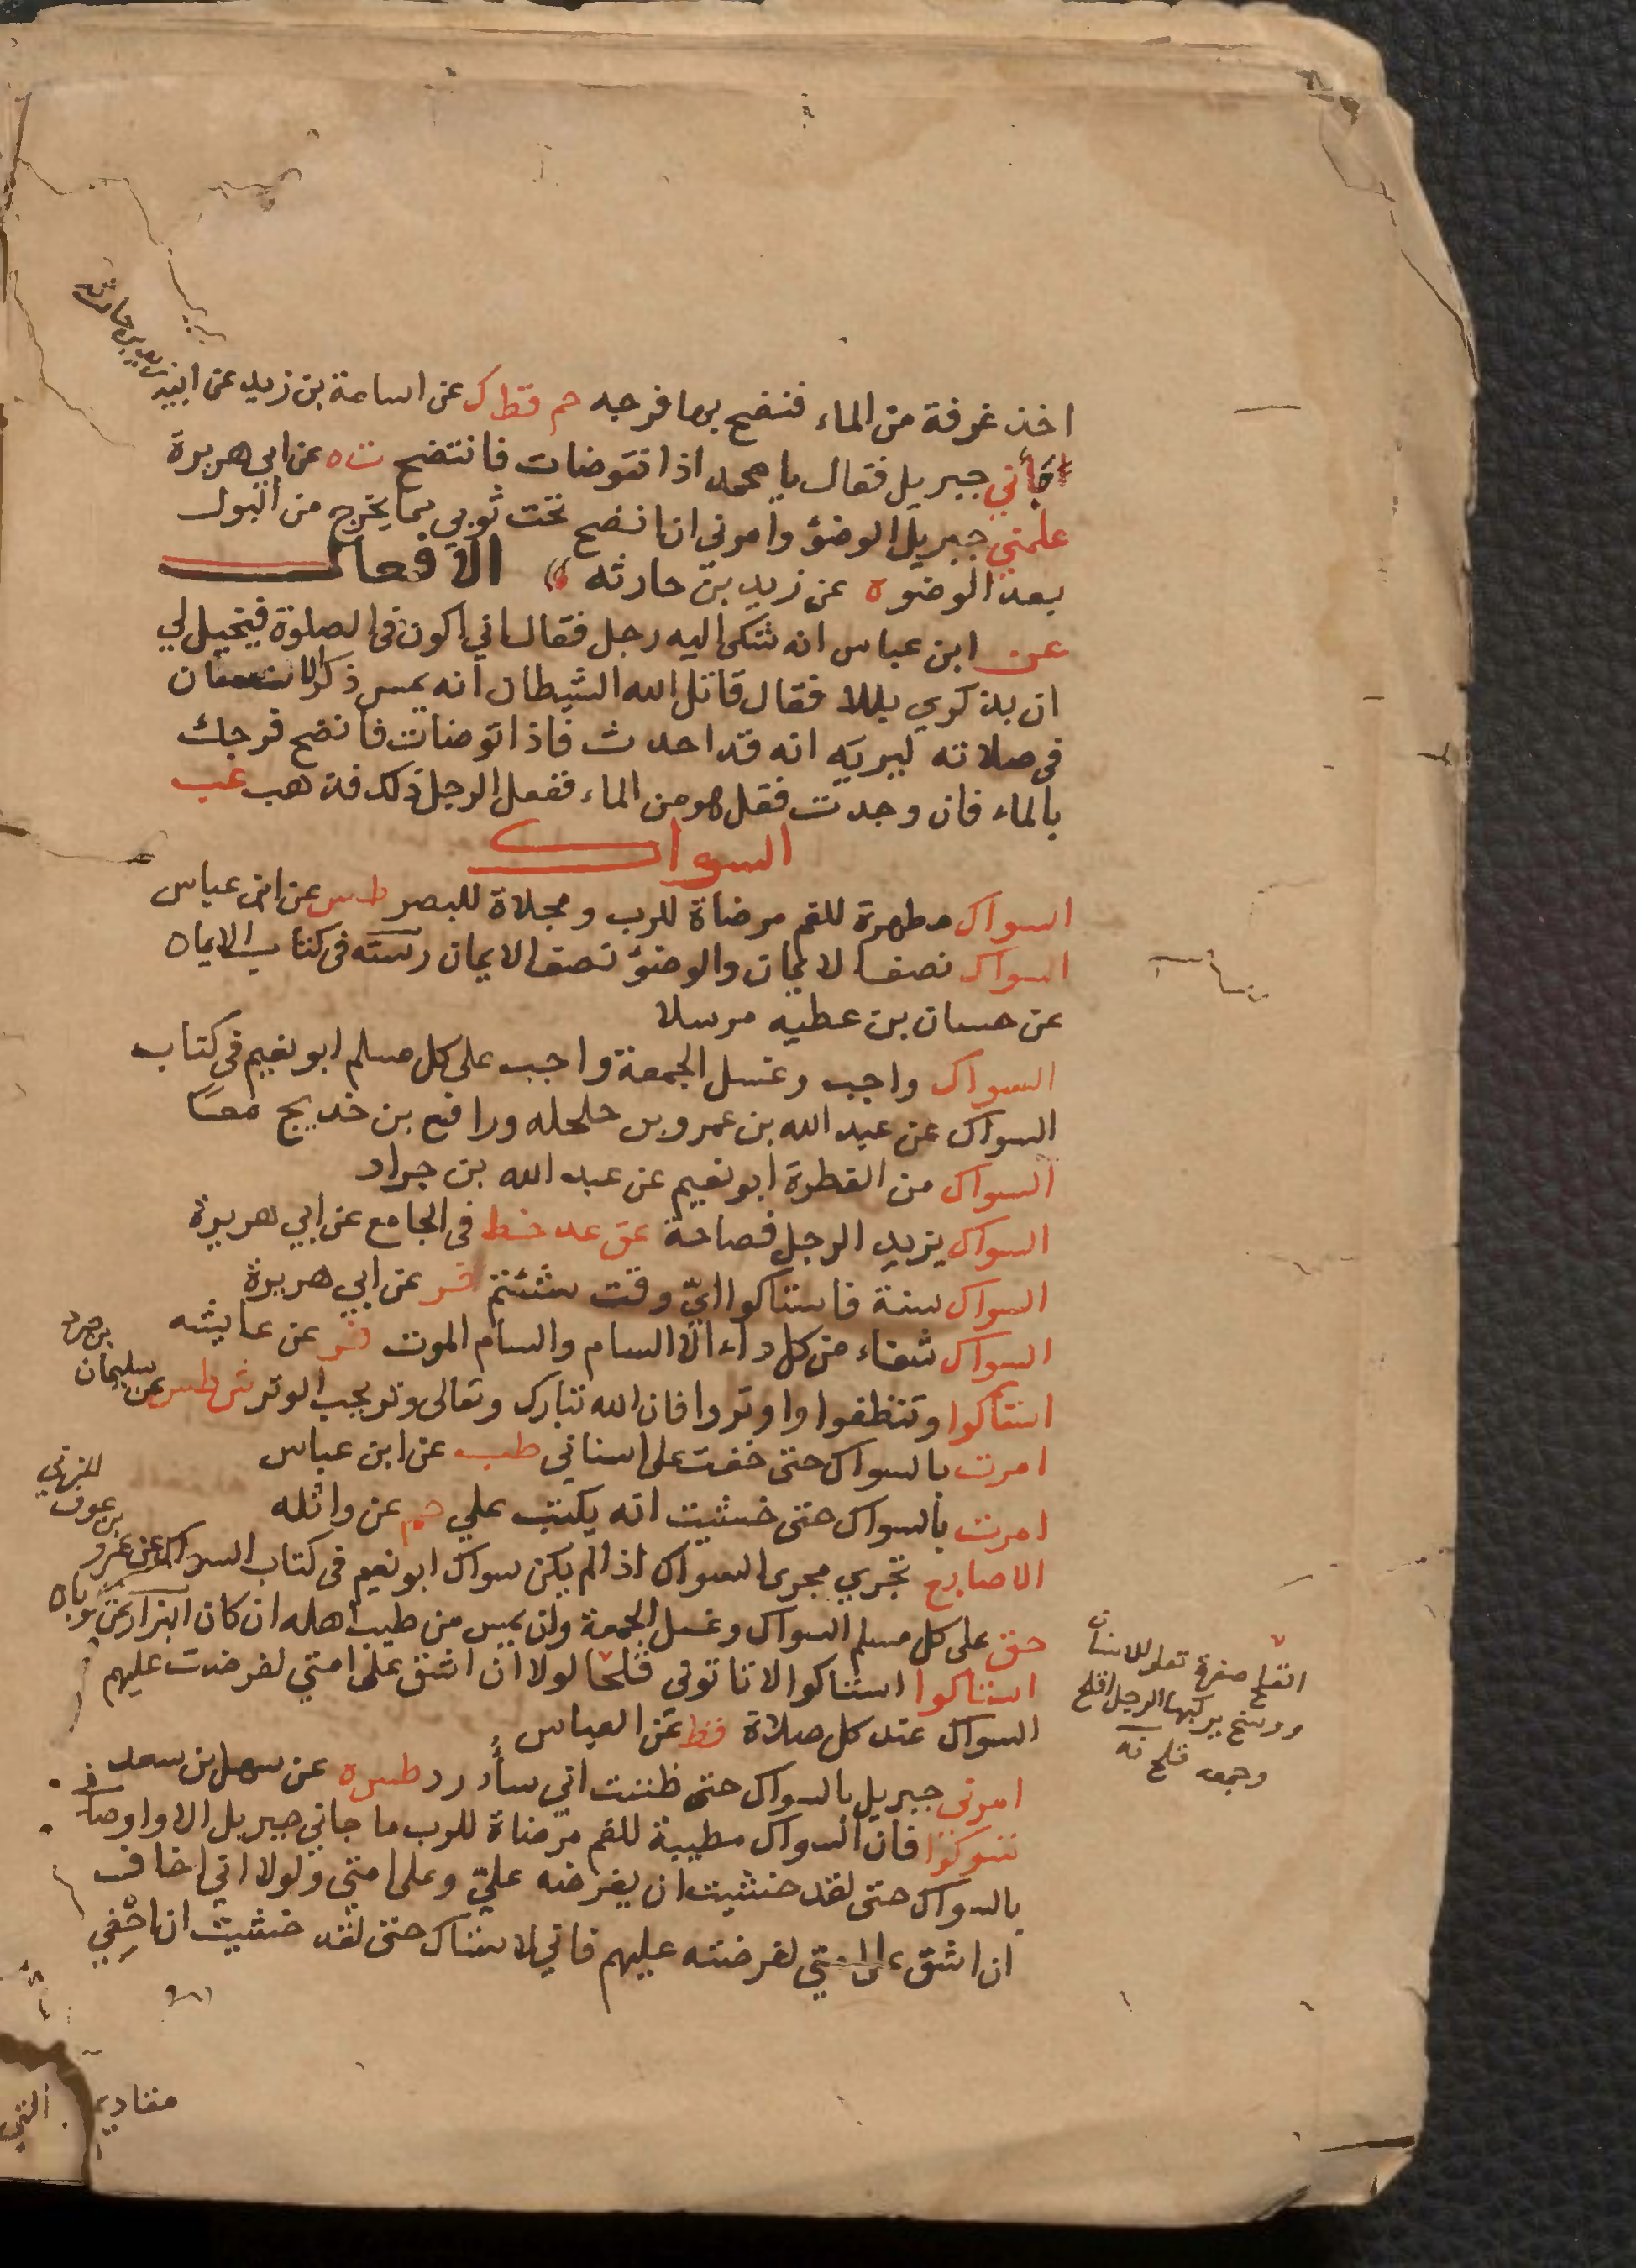 اخذ غرفة من الماء فنضح بها فرجه حم قط ك عن اسامة بن زيد عن ابيه
زيد بن حارثه
جأني جبريل فقال يا محمد اذا توضات فانتضح ت ه عن ابي هريرة
علمني جبريل الوضؤ وامرني ان انضح تحت ثوبي مما يخرج من البول
بعد الوضو ه عن زيد بن حارثه الافعال
عن ابن عباس انه شكى اليه رجل فقال اني اكون في الصلوة فيخيل لي
ان بذكري بللا فقال قاتل الله الشيطان انه يمس ذكر الانسان
في صلاته ليريه انه قد احدث فاذا توضات فانضح فرجك
بالماء فان وجدت فقل هو من الماء ففعل الرجل ذلك فذهب عب
السواك
السواك مطهرة للفم مرضاة للرب ومجلاة للبصر طس عن ابن عباس
السواك نصف الايمان والوضؤ نصف الايمان رسته في كتاب الايمان
عن حسان بن عطيه مرسلا
السواك واجب وغسل الجمعة واجب على كل مسلم ابو نعيم في كتاب
السواك عن عبد الله بن عمرو بن حلحله ورافع بن خديج معًا
السواك من الفطرة ابو نعيم عن عبد الله بن جراد
السواك يزيد الرجل فصاحة عق عد خط في الجامع عن ابي هريرة
السواك سنة فاستاكوا ايّ وقت شئتم فر عن ابي هريرة
السواك شفاء من كل داء الا السام والسام الموت فر عن عايشه
استاكوا وتنظفوا واوتروا فان الله تبارك وتعالى وتر يحب الوتر ش طس عن سليمان
بن صرد
امرت بالسواك حتى خفت على اسناني طب عن ابن عباس
امرت بالسواك حتى خشيت انه يكتب علي حم عن واثله
الاصابع تجري مجرى السواك اذا لم يكن سواك ابو نعيم في كتاب السواك عن عمرو
بن عوف المزني
حق على كل مسلم السواك وغسل الجمعة وان يمس من طيب اهله ان كان البزار عن ثوبان
استاكوا استاكوا لا تاتوني قلحا لولا ان اشق على امتي لفرضت عليهم
السواك عند كل صلاة قط عن العباس
امرني جبريل بالسواك حتى ظننت اني سأدرد طس ه عن سهل بن سعد
تسوكوا فان السواك مطيبة للفم مرضاة للرب ما جاني جبريل الا واوصاني
بالسواك حتى لقد خشيت ان يفرضه عليّ وعلى امتي ولولا اني اخاف
ان اشق على امتي لفرضته عليهم فاني لاستاك حتى لقد خشيت ان احفي
القلح صفرة تعلو الاسنان
ووسخ يركبها الرجل اقلح
وجمعه قلح
مقاديم